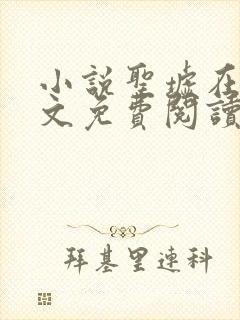 小說聖墟在
文免費閱讀
拜基里連科